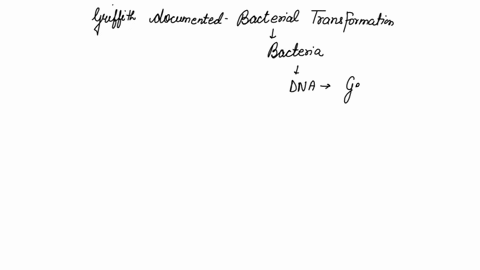 Griffith documented - Bacterial Transformation
↓
Bacteria
↓
DNA → Ge